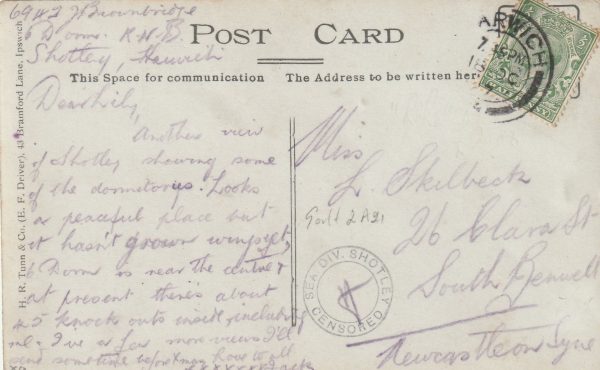 69 J Brownbridge
6 Dorm. R.N.B
Shotley, Harwich
POST CARD
This Space for communication
The Address to be written her
H. R. Tunn & Co. (E. F. Driver), 43 Bramford Lane, Ipswich
Dear Lily,
Another view
of Shotley showing some
of the dormitories. Looks
a peaceful place but
it hasn't grown wings yet,
6 Dorm is near the centre &
at present there's about
45 knock outs inside, including
me. I've a few more views I'll
send some time before Xmas, love to all
Jack
Miss
L. Skilbeck
26 Clara St
South Benwell
Newcastle on Tyne
2 A91
SEA DIV. SHOTLEY
CENSORED
ARWICH
7. PM
18 DC